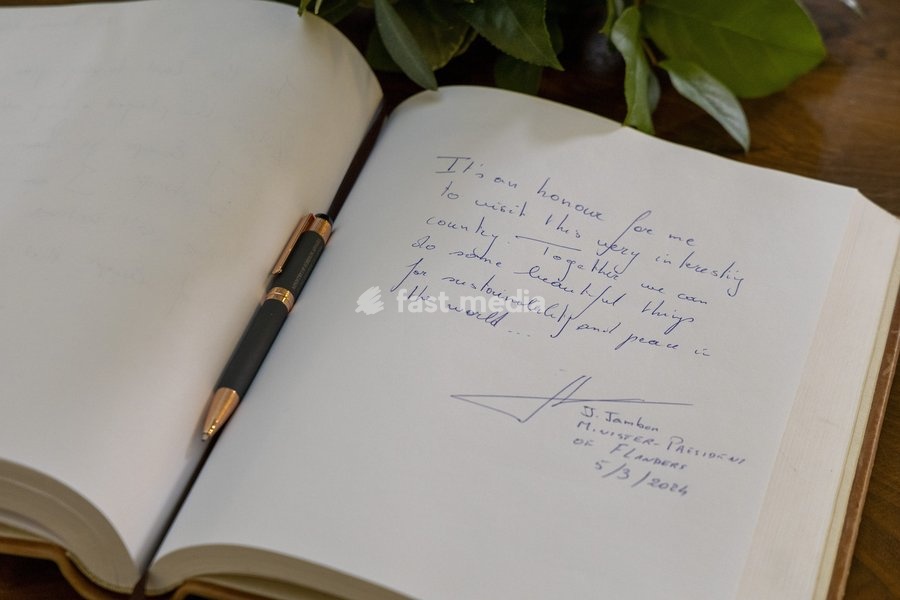 It's an honour for me
to visit this very interestiy
country. Together we can
do some beautiful things
for sustainability and peace in
the world...
JJ. Jambon
MINISTER-PRESIDENT
OF FLANDERS
5/3/2024
fast.media